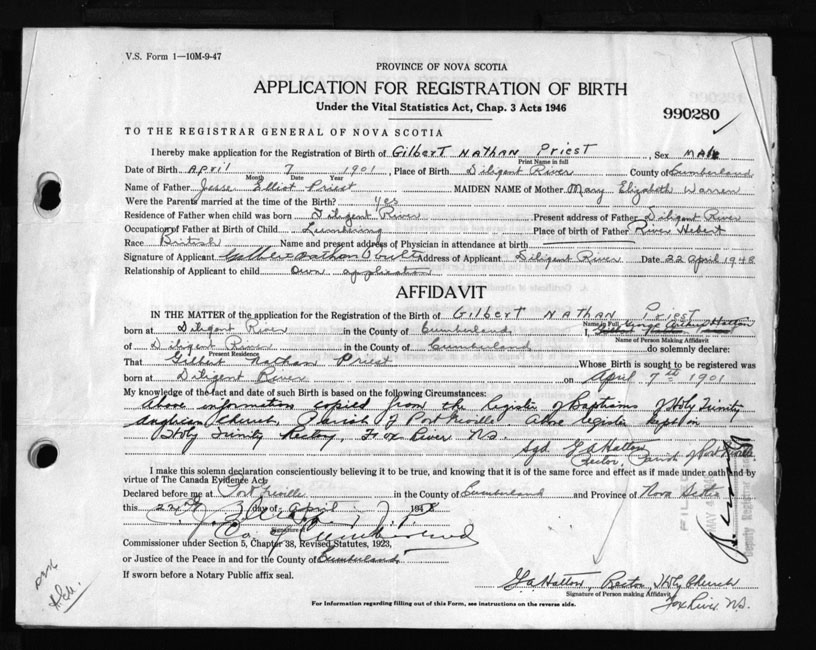 V.S. Form 1—10M-9-47
PROVINCE OF NOVA SCOTIA
APPLICATION FOR REGISTRATION OF BIRTH
Under the Vital Statistics Act, Chap. 3 Acts 1946
990280
TO THE REGISTRAR GENERAL OF NOVA SCOTIA
I hereby make application for the Registration of Birth of Gilbert Nathan Priest, Sex Male
Print Name in full
Date of Birth April 7 1901, Place of Birth Diligent River County of Cumberland
Month Date Year
Name of Father Jesse Elliot Priest MAIDEN NAME of Mother Mary Elizabeth Warren
Were the Parents married at the time of the Birth? Yes
Residence of Father when child was born Diligent River Present address of Father Diligent River
Occupation of Father at Birth of Child Lumbering Place of birth of Father River Hebert
Race British Name and present address of Physician in attendance at birth
Signature of Applicant Gilbert Nathan Address of Applicant Diligent River Date 22 April 1948
Relationship of Applicant to child Own application
AFFIDAVIT
IN THE MATTER of the application for the Registration of the Birth of Gilbert Nathan Priest
Name in Full
born at Diligent River in the County of Cumberland I, George Arthur Hatton
Name of Person Making Affidavit
of Diligent River in the County of Cumberland do solemnly declare:
Present Residence
That Gilbert Nathan Priest Whose Birth is sought to be registered was
born at Diligent River on April 7th 1901
My knowledge of the fact and date of such Birth is based on the following Circumstances:
Above information copied from the Register of Baptisms of Holy Trinity
Anglican Church, Parish of Port Greville. Above register kept in
Holy Trinity Rectory, Fox River N.S.
Sgd G A Hatton
Rector, Parish of Port Greville
I make this solemn declaration conscientiously believing it to be true, and knowing that it is of the same force and effect as if made under oath and by
virtue of The Canada Evidence Act.
Declared before me at Port Greville in the County of Cumberland and Province of Nova Scotia
this 24th day of April 1948
Signature of
Co of Cumberland
Commissioner under Section 5, Chapter 38, Revised Statutes, 1923,
or Justice of the Peace in and for the County of Cumberland
If sworn before a Notary Public affix seal.
G A Hatton Rector, Holy Church
Signature of Person making Affidavit
Fox River N.S.
For Information regarding filling out of this Form, see instructions on the reverse side.
FILED
MAY
Deputy Registrar